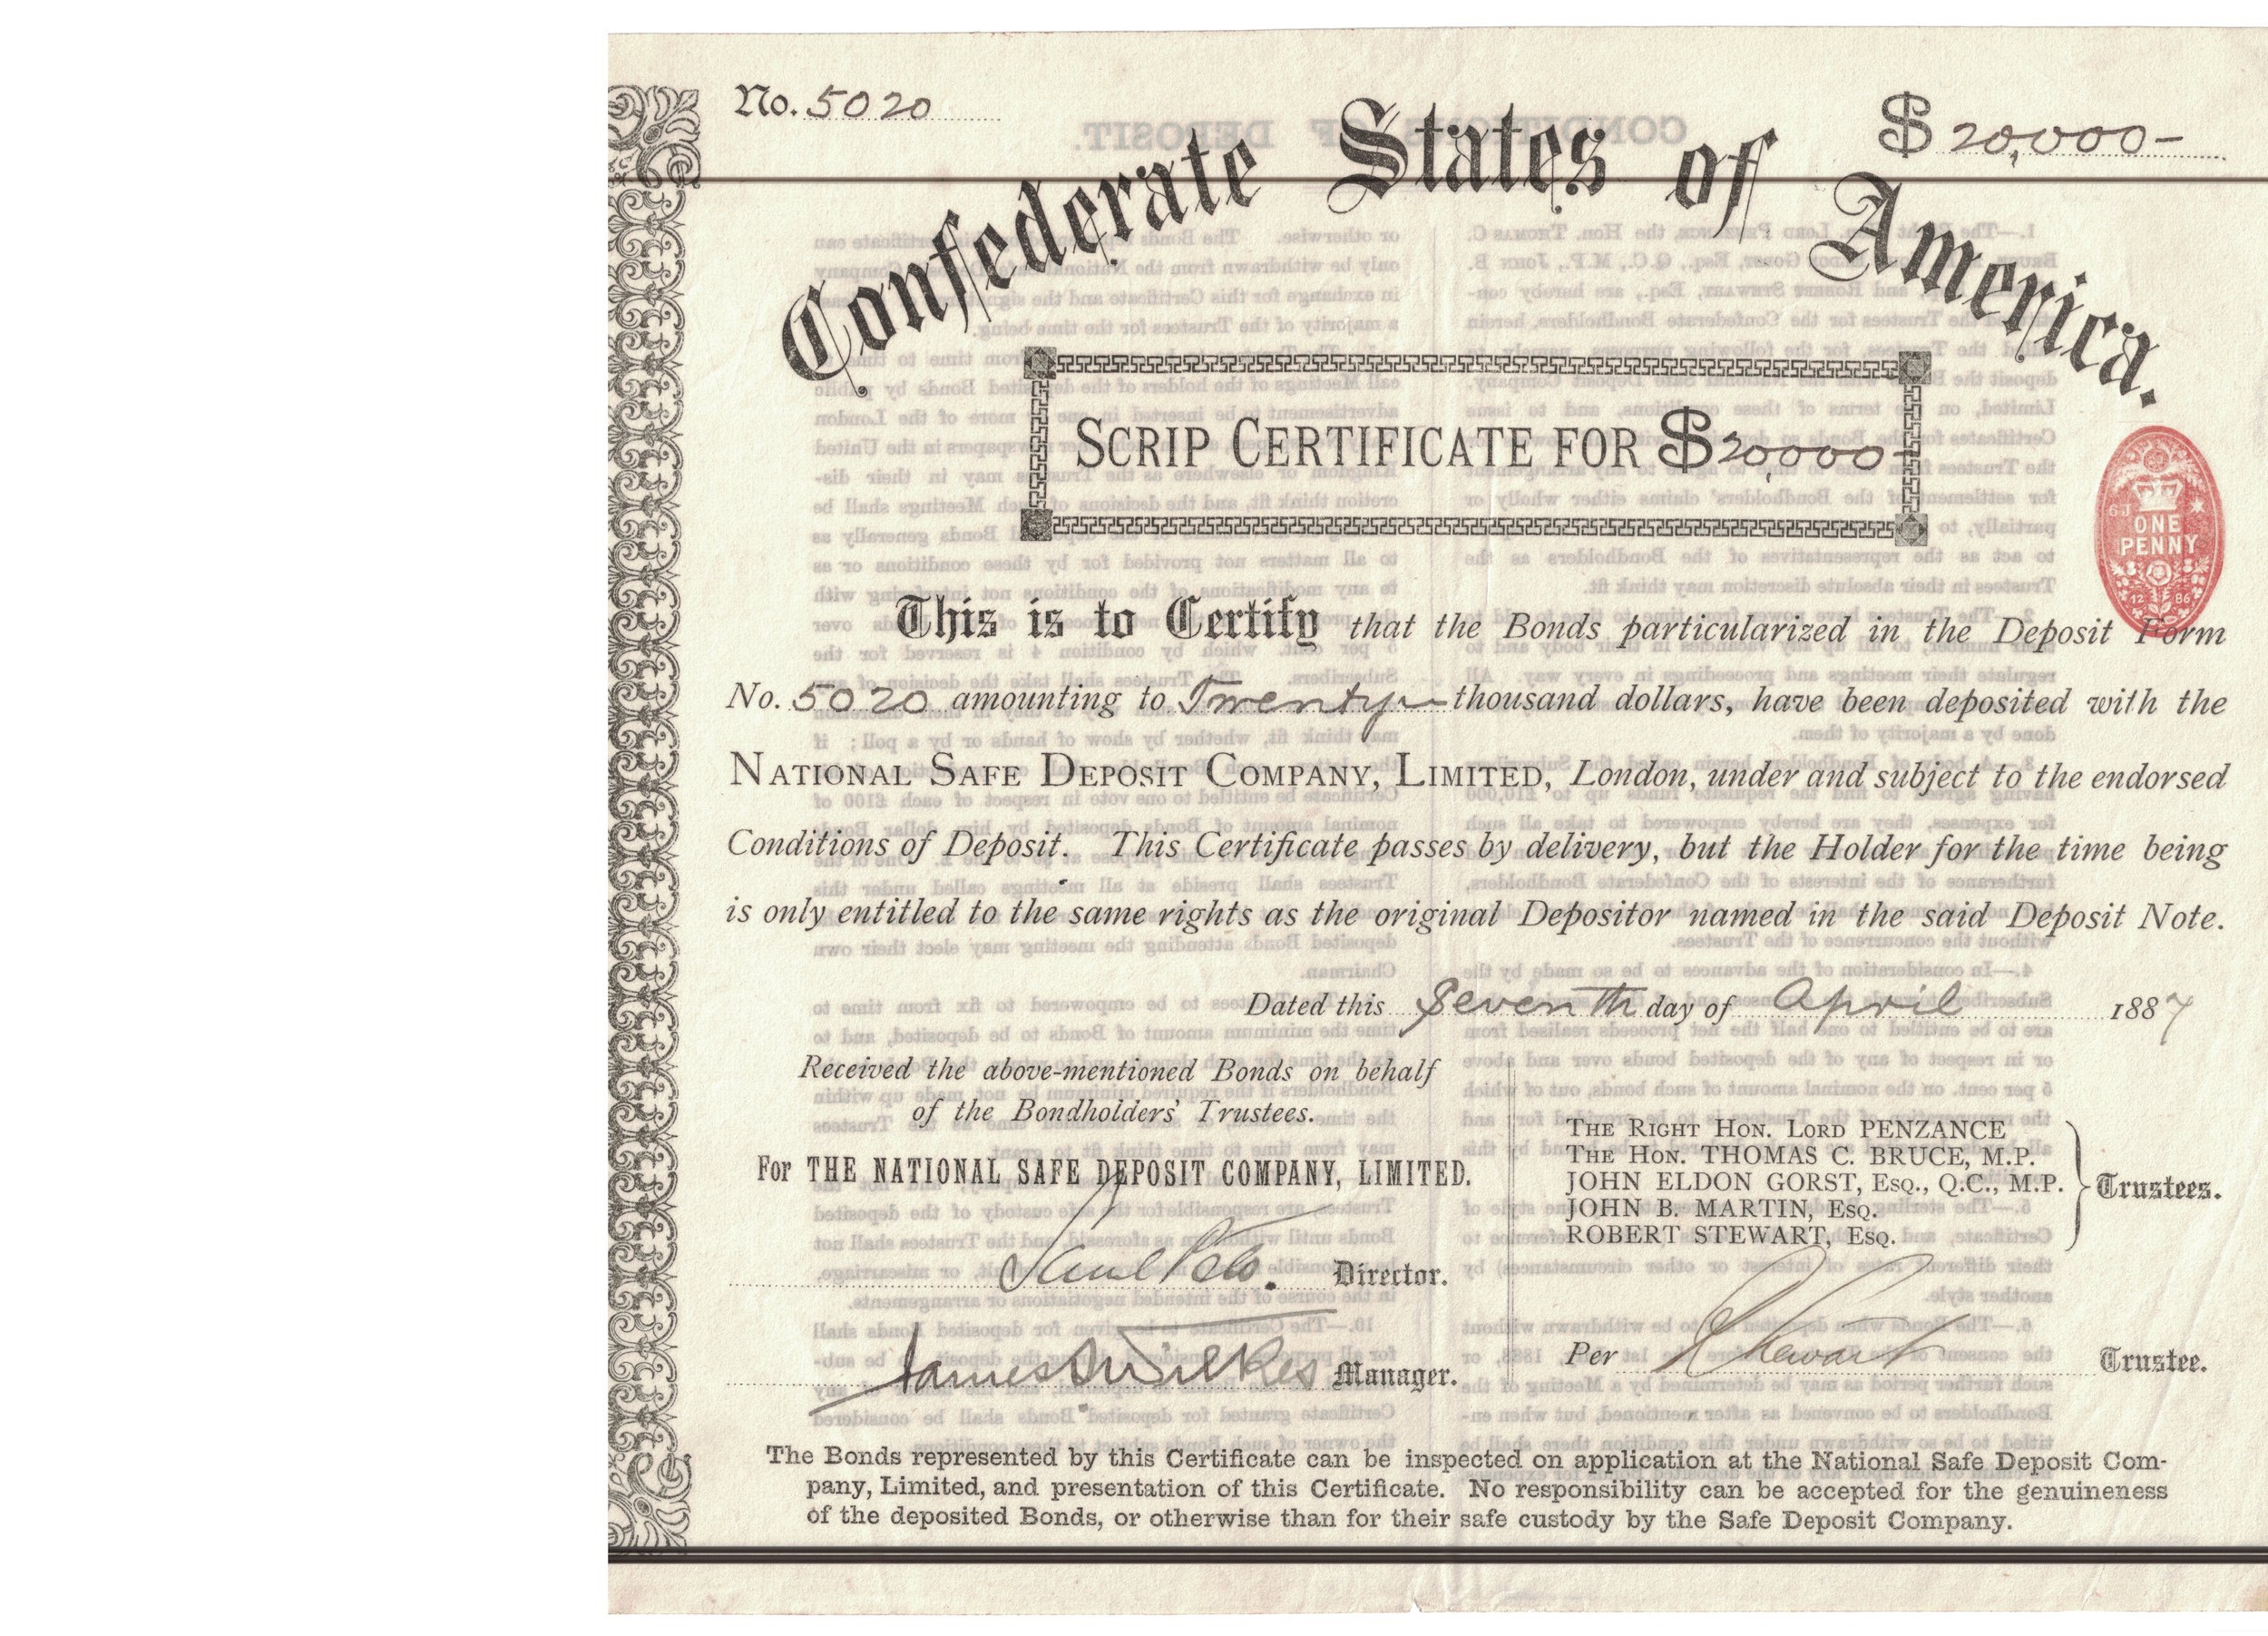 No. 5020
$ 20,000-
Confederate States of America.
SCRIP CERTIFICATE FOR $20,000-
ONE
PENNY
12 86
This is to Certify that the Bonds particularized in the Deposit Form
No. 5020 amounting to Twenty thousand dollars, have been deposited with the
NATIONAL SAFE DEPOSIT COMPANY, LIMITED, London, under and subject to the endorsed
Conditions of Deposit. This Certificate passes by delivery, but the Holder for the time being
is only entitled to the same rights as the original Depositor named in the said Deposit Note.
Dated this Seventh day of April 1887
Received the above-mentioned Bonds on behalf
of the Bondholders' Trustees.
For THE NATIONAL SAFE DEPOSIT COMPANY, LIMITED.
Director.
James Wilkes Manager.
THE RIGHT HON. LORD PENZANCE
THE HON. THOMAS C. BRUCE, M.P.
JOHN ELDON GORST, ESQ., Q.C., M.P.
JOHN B. MARTIN, ESQ.
ROBERT STEWART, ESQ.
Trustees.
Per R Stewart Trustee.
The Bonds represented by this Certificate can be inspected on application at the National Safe Deposit Com-
pany, Limited, and presentation of this Certificate. No responsibility can be accepted for the genuineness
of the deposited Bonds, or otherwise than for their safe custody by the Safe Deposit Company.